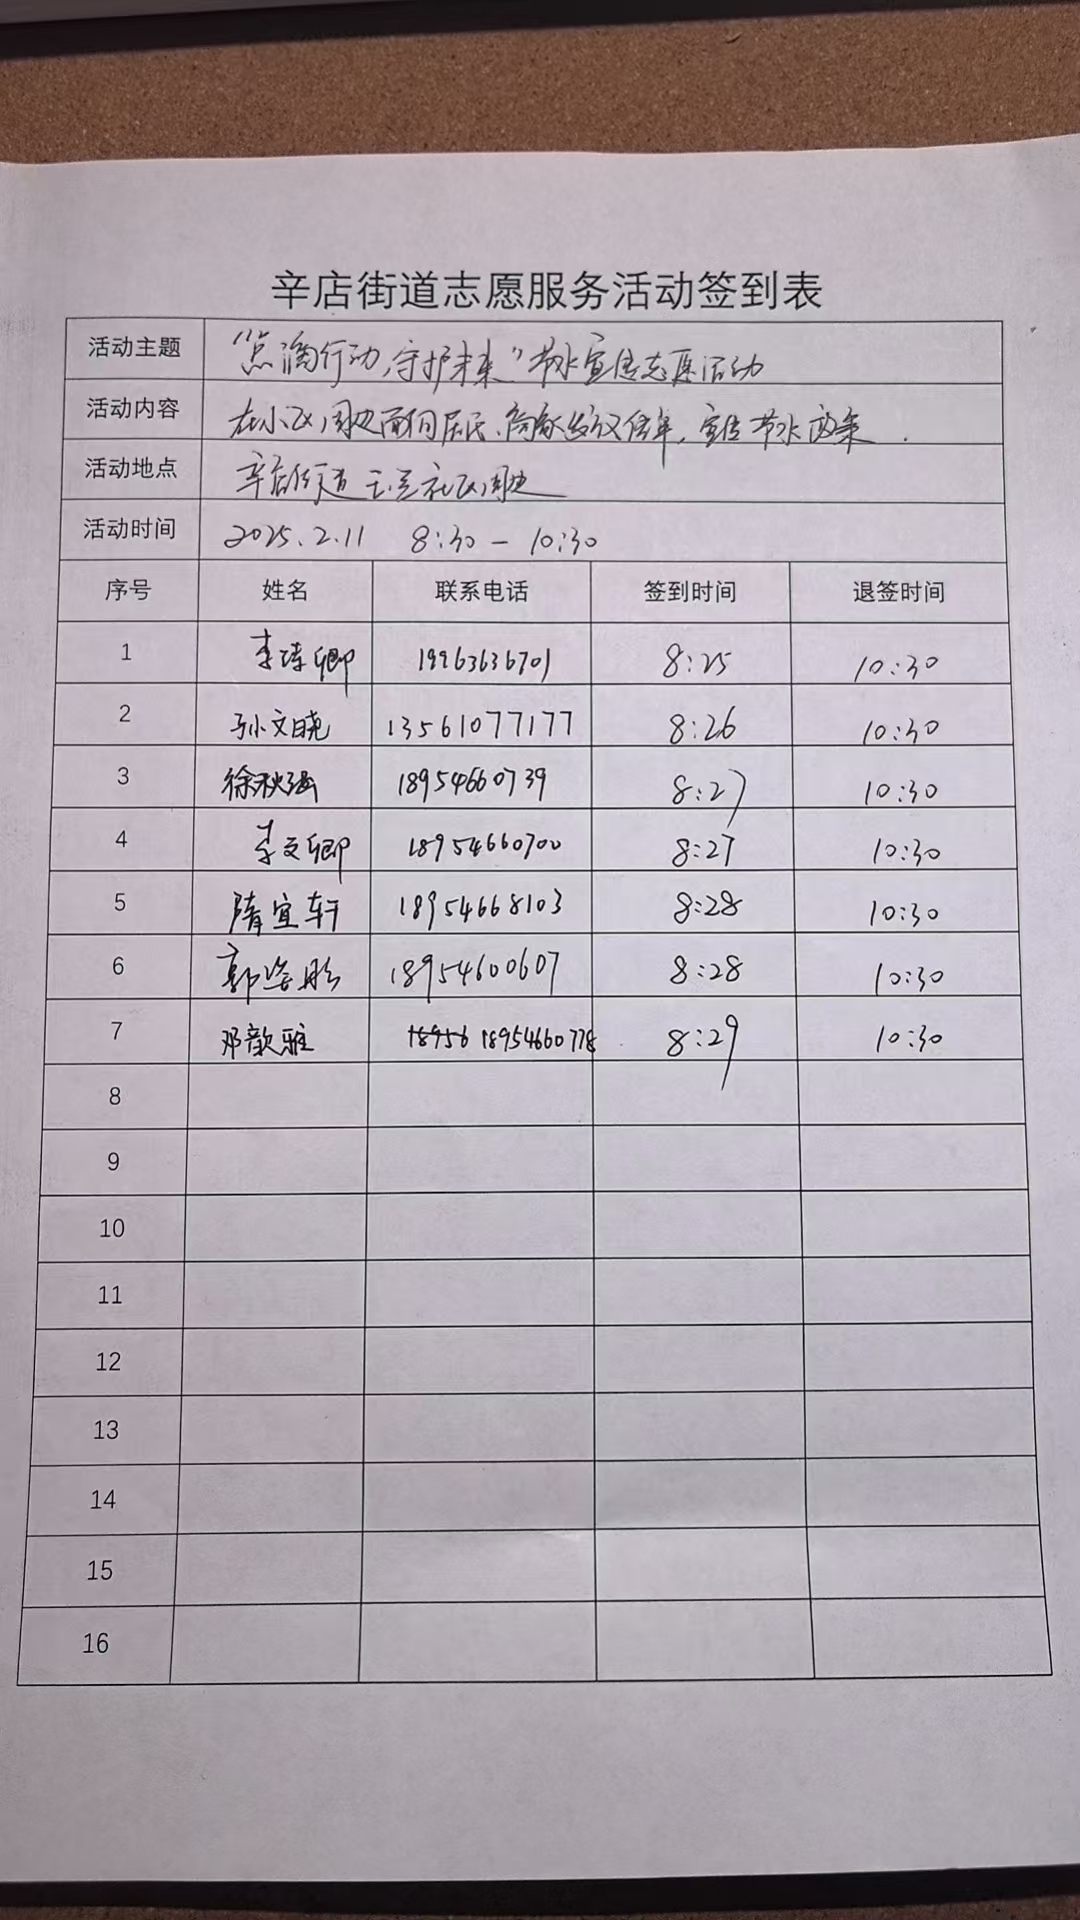 辛店街道志愿服务活动签到表
活动主题 “点滴行动,守护未来”节水宣传志愿活动
活动内容 在小区周边面向居民、商家发放传单,宣传节水政策.
活动地点 辛店街道 社区周边
活动时间 2025.2.11 8:30 — 10:30
序号 姓名 联系电话 签到时间 退签时间
1 李 卿 19963636701 8:25 10:30
2 孙文晓 13561077177 8:26 10:30
3 徐秋 18954660739 8:27 10:30
4 李文卿 18954660700 8:27 10:30
5 隋宜轩 18954668103 8:28 10:30
6 郭 18954600607 8:28 10:30
7 邓歆雅 18956 18954660778 8:29 10:30
8
9
10
11
12
13
14
15
16